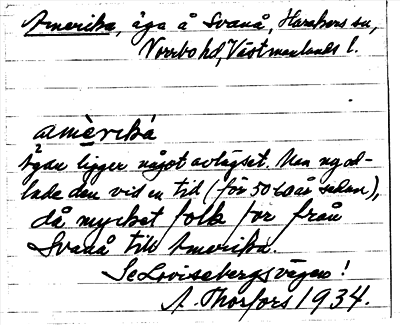 Amerika, äga å Svanå, Harakers sn,
Norrbo hd, Västmanlands l.
amèrika
Ägan ligger något avlägset. Man nyod-
lade den vid en tid (för 50 60 år sedan),
då mycket folk for från
Svanå till Amerika.
Se Lovisebergsvägen!
A. Thorfors 1934.